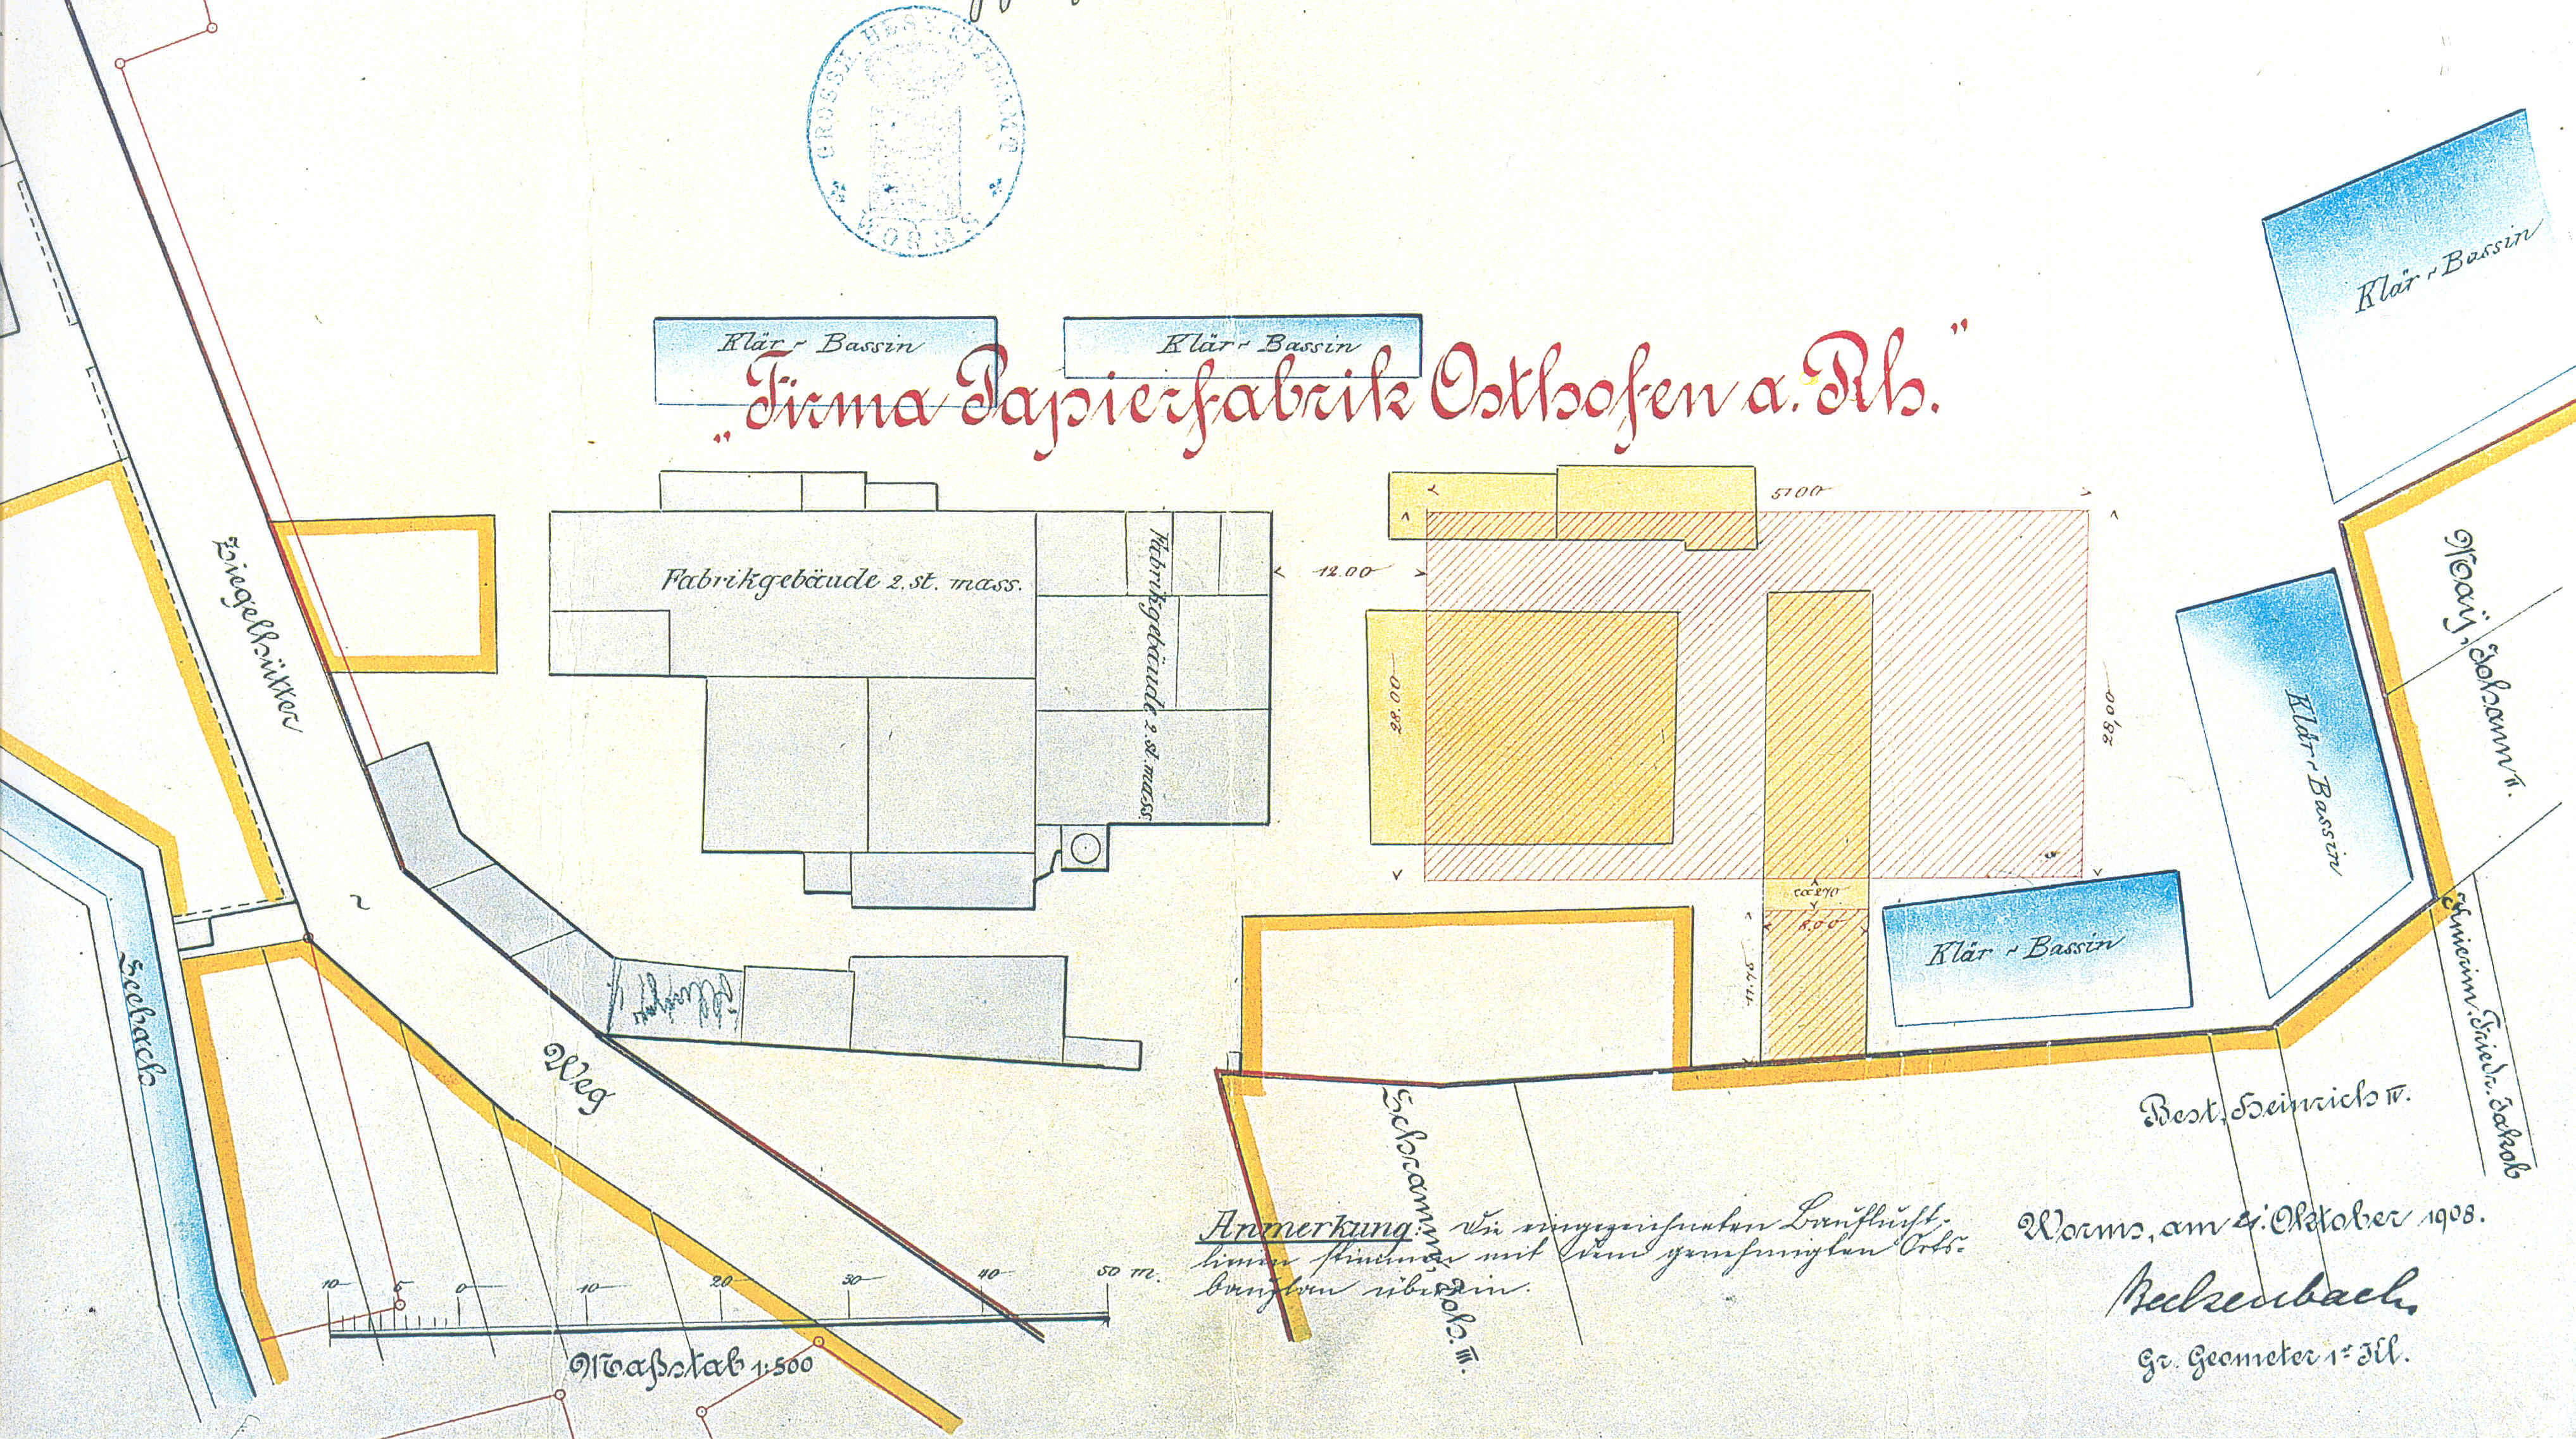 GROSSH. HESS. KREISAMT
WORMS
Klär-Bassin
Klär-Bassin
Klär-Bassin
„Firma Papierfabrik Osthofen a. Rh."
51.00
Fabrikgebäude 2. st. mass.
Fabrikgebäude 2. st. mass.
12.00
28.00
28,00
Ziegelhütter
Weg
Seebach
Klär-Bassin
Klär-Bassin
8.00
11.75
Best, Heinrich IV.
Friedr. Jakob
Schramm, Joh. III.
Anmerkung: Die eingezeichneten Bauflucht-
linien stimmen mit dem genehmigten Orts-
bauplan überein.
Worms, am 21. Oktober 1908.
Beckenbach
Gr. Geometer 1r Kl.
10 5 0 10 20 30 40 50 m.
Maßstab 1:500